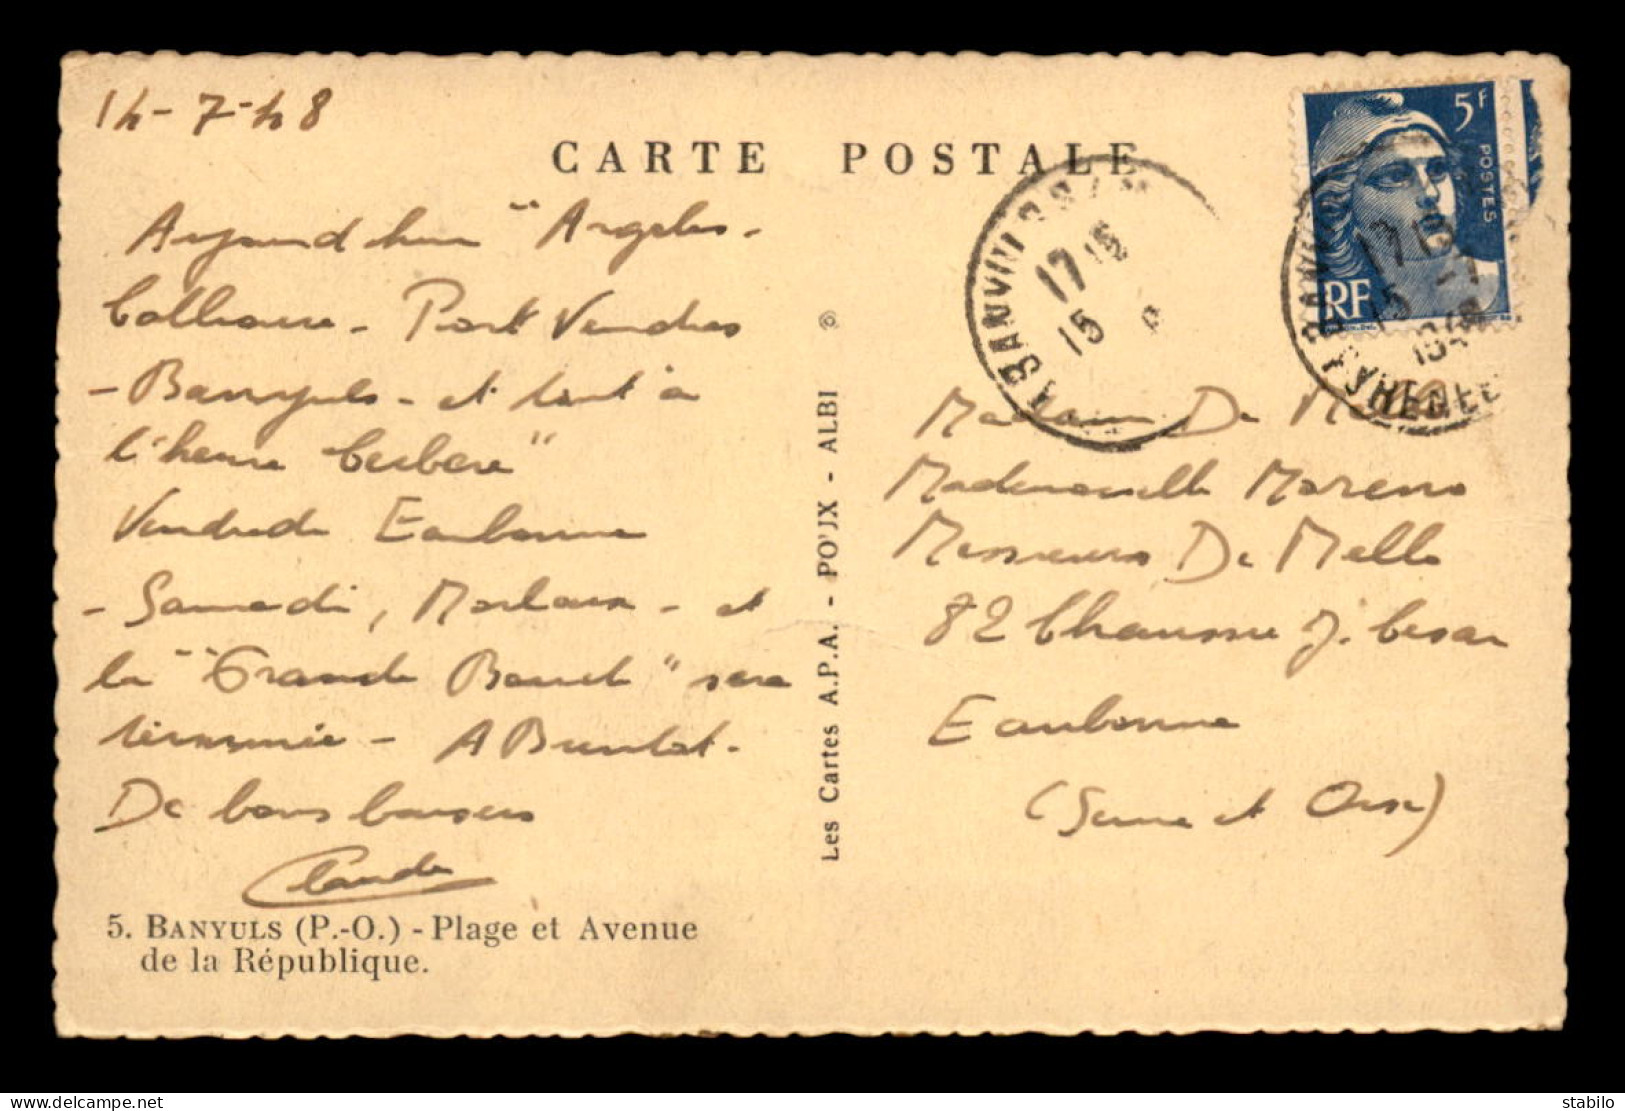 14-7-48
CARTE POSTALE
5F
POSTES
RF
17 15
15
Aujourd'hui "Argelès-
Collioure - Port Vendres
- Banyuls - et tout à
l'heure Cerbère"
Vendredi Eaubonne
- Samedi, Morlaix - et
la "Grande Boucle" sera
terminée - A Bientôt.
De bons baisers
Claude
5. BANYULS (P.-O.) - Plage et Avenue
de la République.
Les Cartes A.P.A. - POUX - ALBI ©
Madame De Mello
Mademoiselle Moreno
Messieurs De Mello
82 Chaussée J. Cesar
Eaubonne
(Seine et Oise)
delcampe.net
stabilo